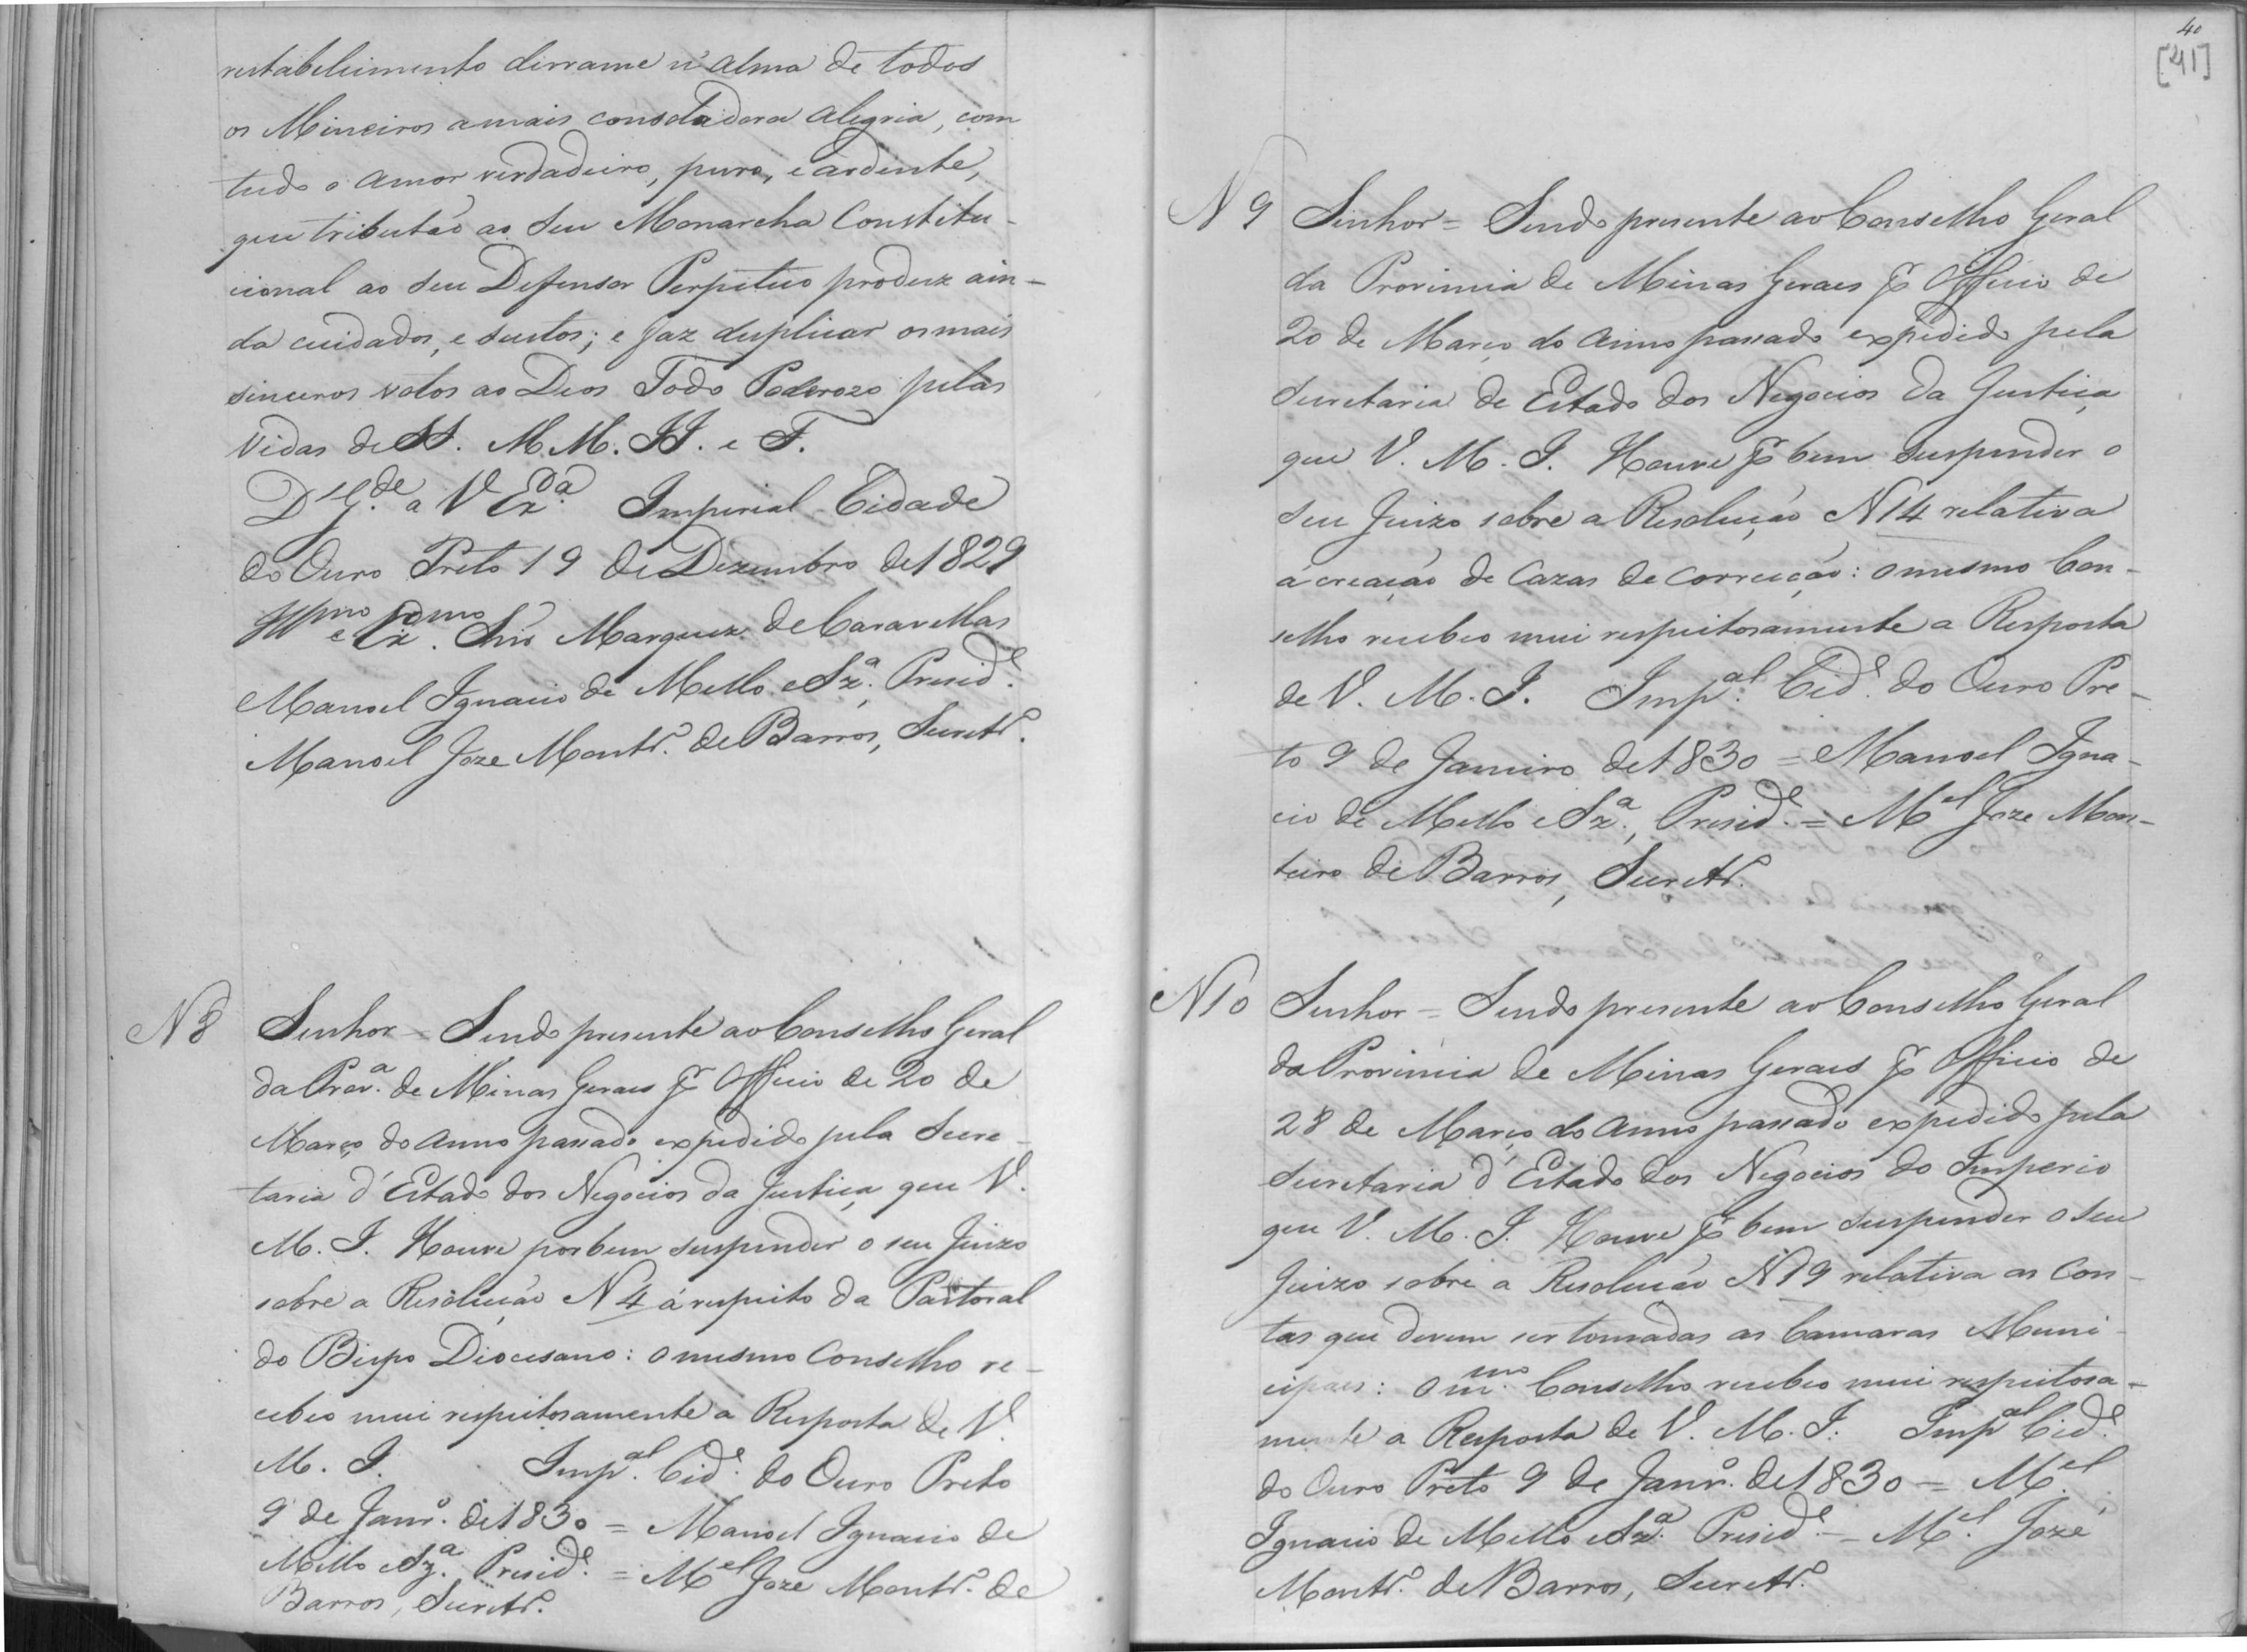 restabelecimento derrame n'alma de todos
os Mineiros a mais consoladora alegria, com
tudo o amor verdadeiro, puro, e ardente,
que tributão ao seu Monarcha Constitu-
cional ao seu Defensor Perpetuo produz ain-
da cuidados, e sustos; e faz duplicar os mais
sinceros votos ao Deos Todo Poderozo pelas
vidas de SS. M.M. I.I. e F.
D.s G.de a V Ex.a Imperial Cidade
do Ouro Preto 19 de Dezembro de 1829
Ill.mo e Ex.mo Snr Marquez de Caravellas
Manoel Ignacio de Mello e Sz.a, Presid.e
Manoel Joze Montr.o de Barros, Secretr.o
N 8 Senhor = Sendo presente ao Conselho Geral
da Prov.a de Minas Geraes pr Officio de 20 de
Março do anno passado expedido pela Secre-
taria d'Estado dos Negocios da Justiça, que V.
M. I. Houve por bem suspender o seu Juizo
sobre a Resolução N 4 á respeito da Pastoral
do Bispo Diocesano: o mesmo Conselho re-
cebeo mui respeitosamente a Resposta de V.
M. I. Imp.al Cid.e do Ouro Preto
9 de Janr.o de 1830 = Manoel Ignacio de
Mello e Sz.a Presid.e = M.el Joze Montr.o de
Barros, Secretr.o
40
[41]
N 9 Senhor = Sendo presente ao Conselho Geral
da Provincia de Minas Geraes pr Officio de
20 de Março do anno passado expedido pela
Secretaria de Estado dos Negocios da Justiça,
que V. M. I. Houve pr bem suspender o
seu Juizo sobre a Resolução N 14 relativa
á creação de Cazas de Correição: o mesmo Con-
selho recebeo mui respeitosamente a Resposta
de V. M. I. Imp.al Cid.e do Ouro Pre-
to 9 de Janeiro de 1830 = Manoel Igna-
cio de Mello e Sz.a, Presid.e = M.el Joze Mon-
teiro de Barros, Secretr.o
N 10 Senhor = Sendo presente ao Conselho Geral
da Provincia de Minas Geraes pr Officio de
28 de Março do anno passado expedido pela
Secretaria d'Estado dos Negocios do Imperio
que V. M. I. Houve pr bem suspender o seu
Juizo sobre a Resolução N 19 relativa as Con-
tas que devem ser tomadas as Camaras Muni-
cipaes: o m.mo Conselho recebeo mui respeitosa-
mente a Resposta de V. M. I. Imp.al Cid.e
do Ouro Preto 9 de Janr.o de 1830 = M.el
Ignacio de Mello e Sz.a Presid.e = M.el Jozé
Montr.o de Barros, Secretr.o